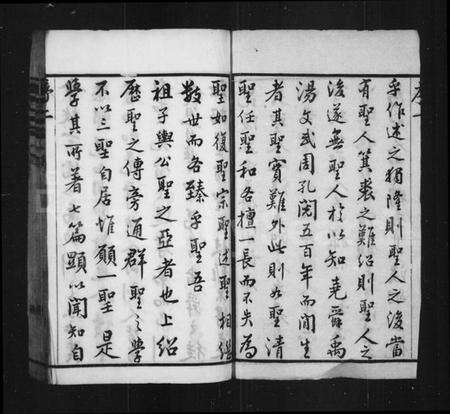 乎作述之獨隆則聖人之後當
有聖人箕裘之難紹則聖人之
後遂無聖人於以知堯舜禹
湯文武周孔閱五百年而間生
者其聖實難外此則如聖清
聖任聖和各擅一長而不失為
聖如復聖宗聖述聖相繼
數世而各臻乎聖吾
祖子輿公聖之亞者也上紹
歷聖之傳旁通群聖之學
不以三聖自居惟願一聖是
學其所著七篇顯以聞知自
序二